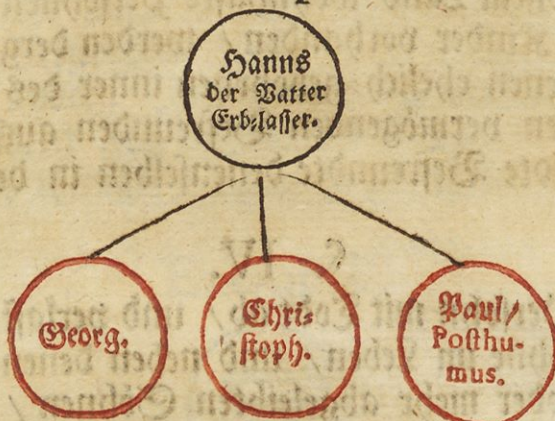 Hanns
der Vatter
Erb⸗lasser.
Georg.
Chri⸗
stoph.
Paul/
Posthu-
mus.